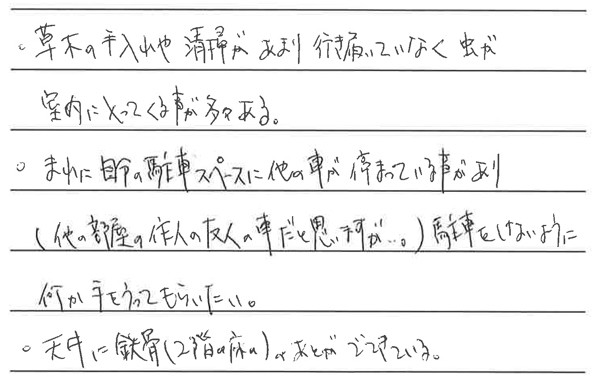 。草木の手入れや清掃があまり行き届いていなく虫が
室内に入ってくる事が多々ある。
。まれに自分の駐車スペースに他の車が停まっている事があり
(他の部屋の住人の友人の車だと思いますが…。)駐車をしないように
何か手をうってもらいたい。
。天井に鉄骨(2階の床の)のあとがでてきている。